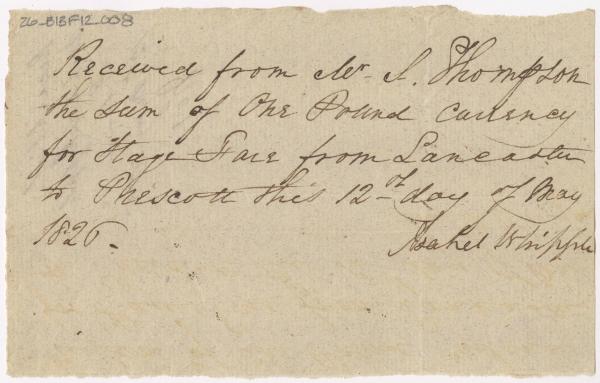 26-B13F12_008
Received from Mr. S. Thompson
the sum of One Pound Currency
for Stage Fare from Lancaster
to Prescott this 12th day of May
1826.
Asahel Whipple